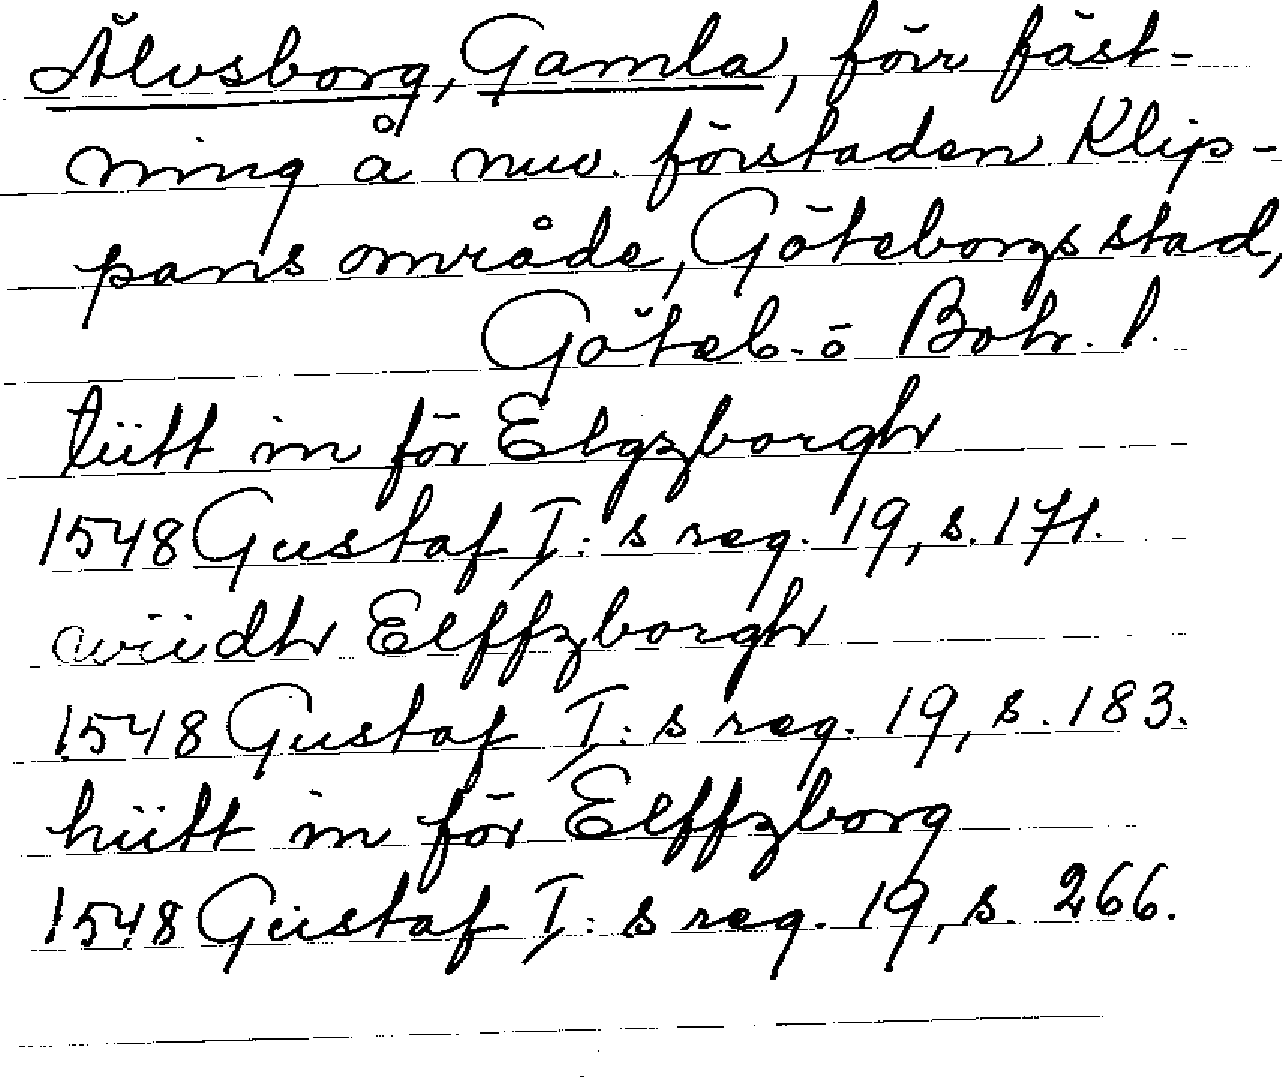 Älvsborg, Gamla, förr fäst-
ning å nuv. förstaden Klip-
pans område, Göteborgs stad,
Göteb.- ö Boh. l.
tiitt in för Elgzborgh
1548 Gustaf I:s reg. 19, s. 171.
wiidh Elffzborgh
1548 Gustaf I:s reg. 19, s. 183.
hiitt in för Elffzborg
1548 Gustaf I:s reg. 19, s. 266.